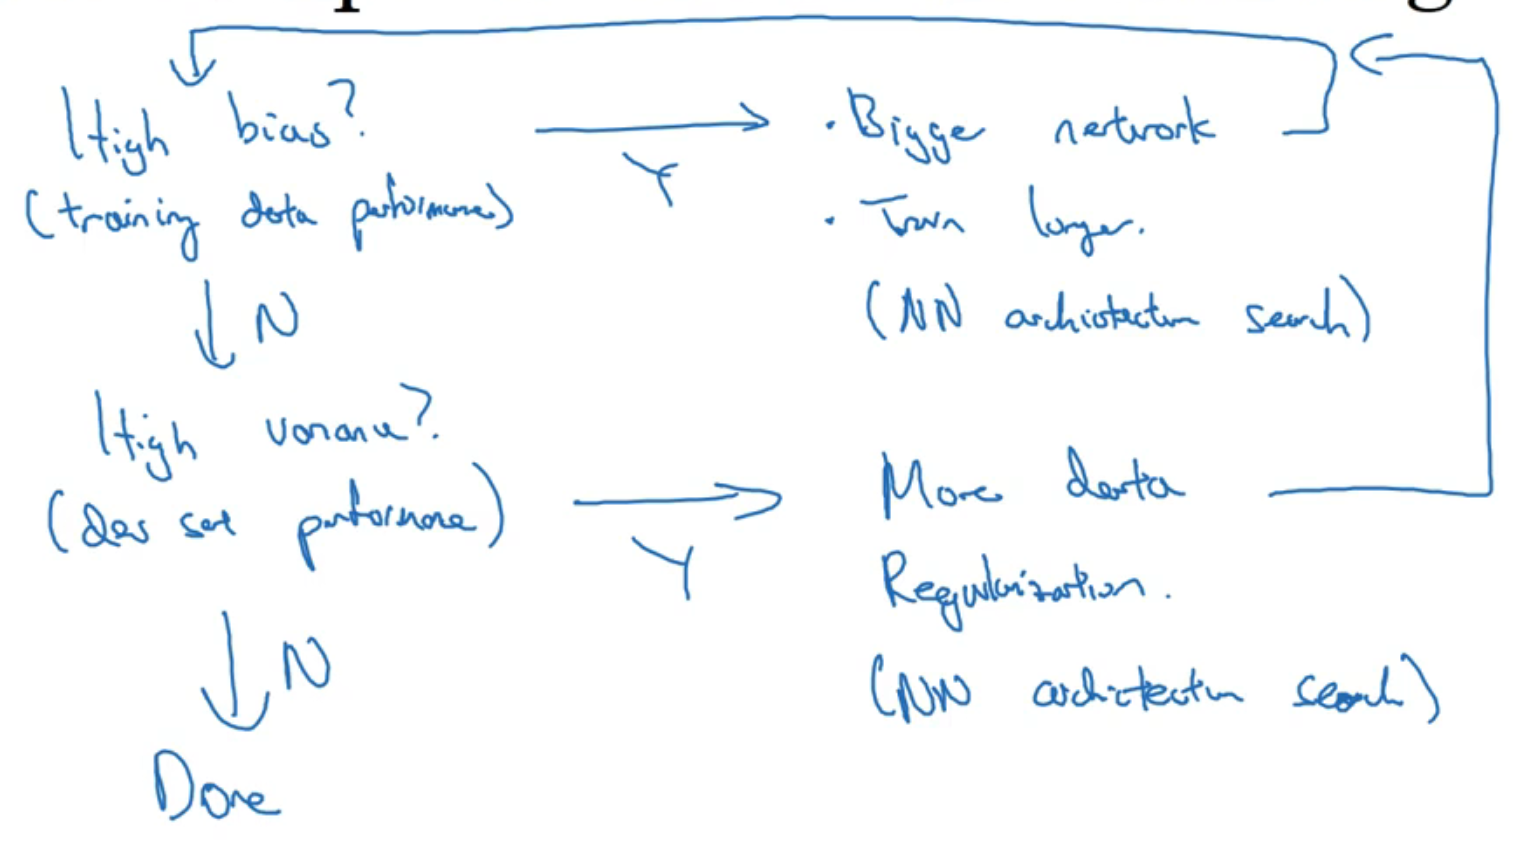 High bias?
(training data performance)
Y
· Bigge network
· Train longer.
(NN architecture search)
N
High variance?
(dev set performance)
Y
More data
Regularization.
(NN architecture search)
N
Done